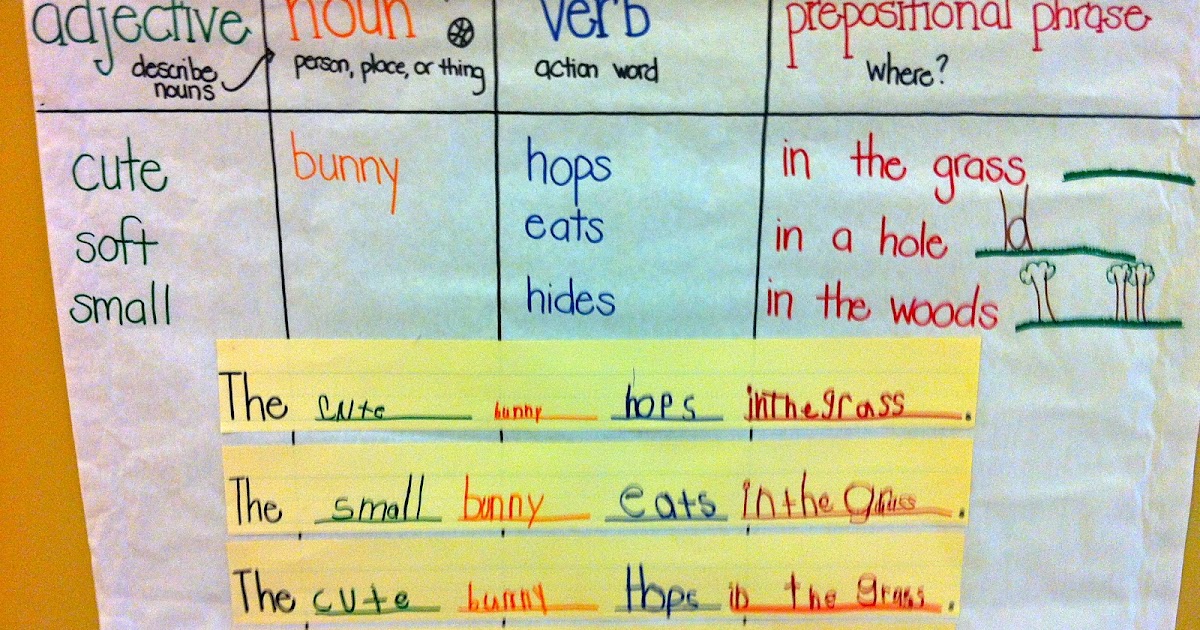 adjective noun verb prepositional phrase
describe nouns person, place, or thing action word where?
cute bunny hops in the grass
soft eats in a hole
small hides in the woods
The cute bunny hops inthegrass.
The small bunny eats in the grass.
The cute bunny Hops in the grass.